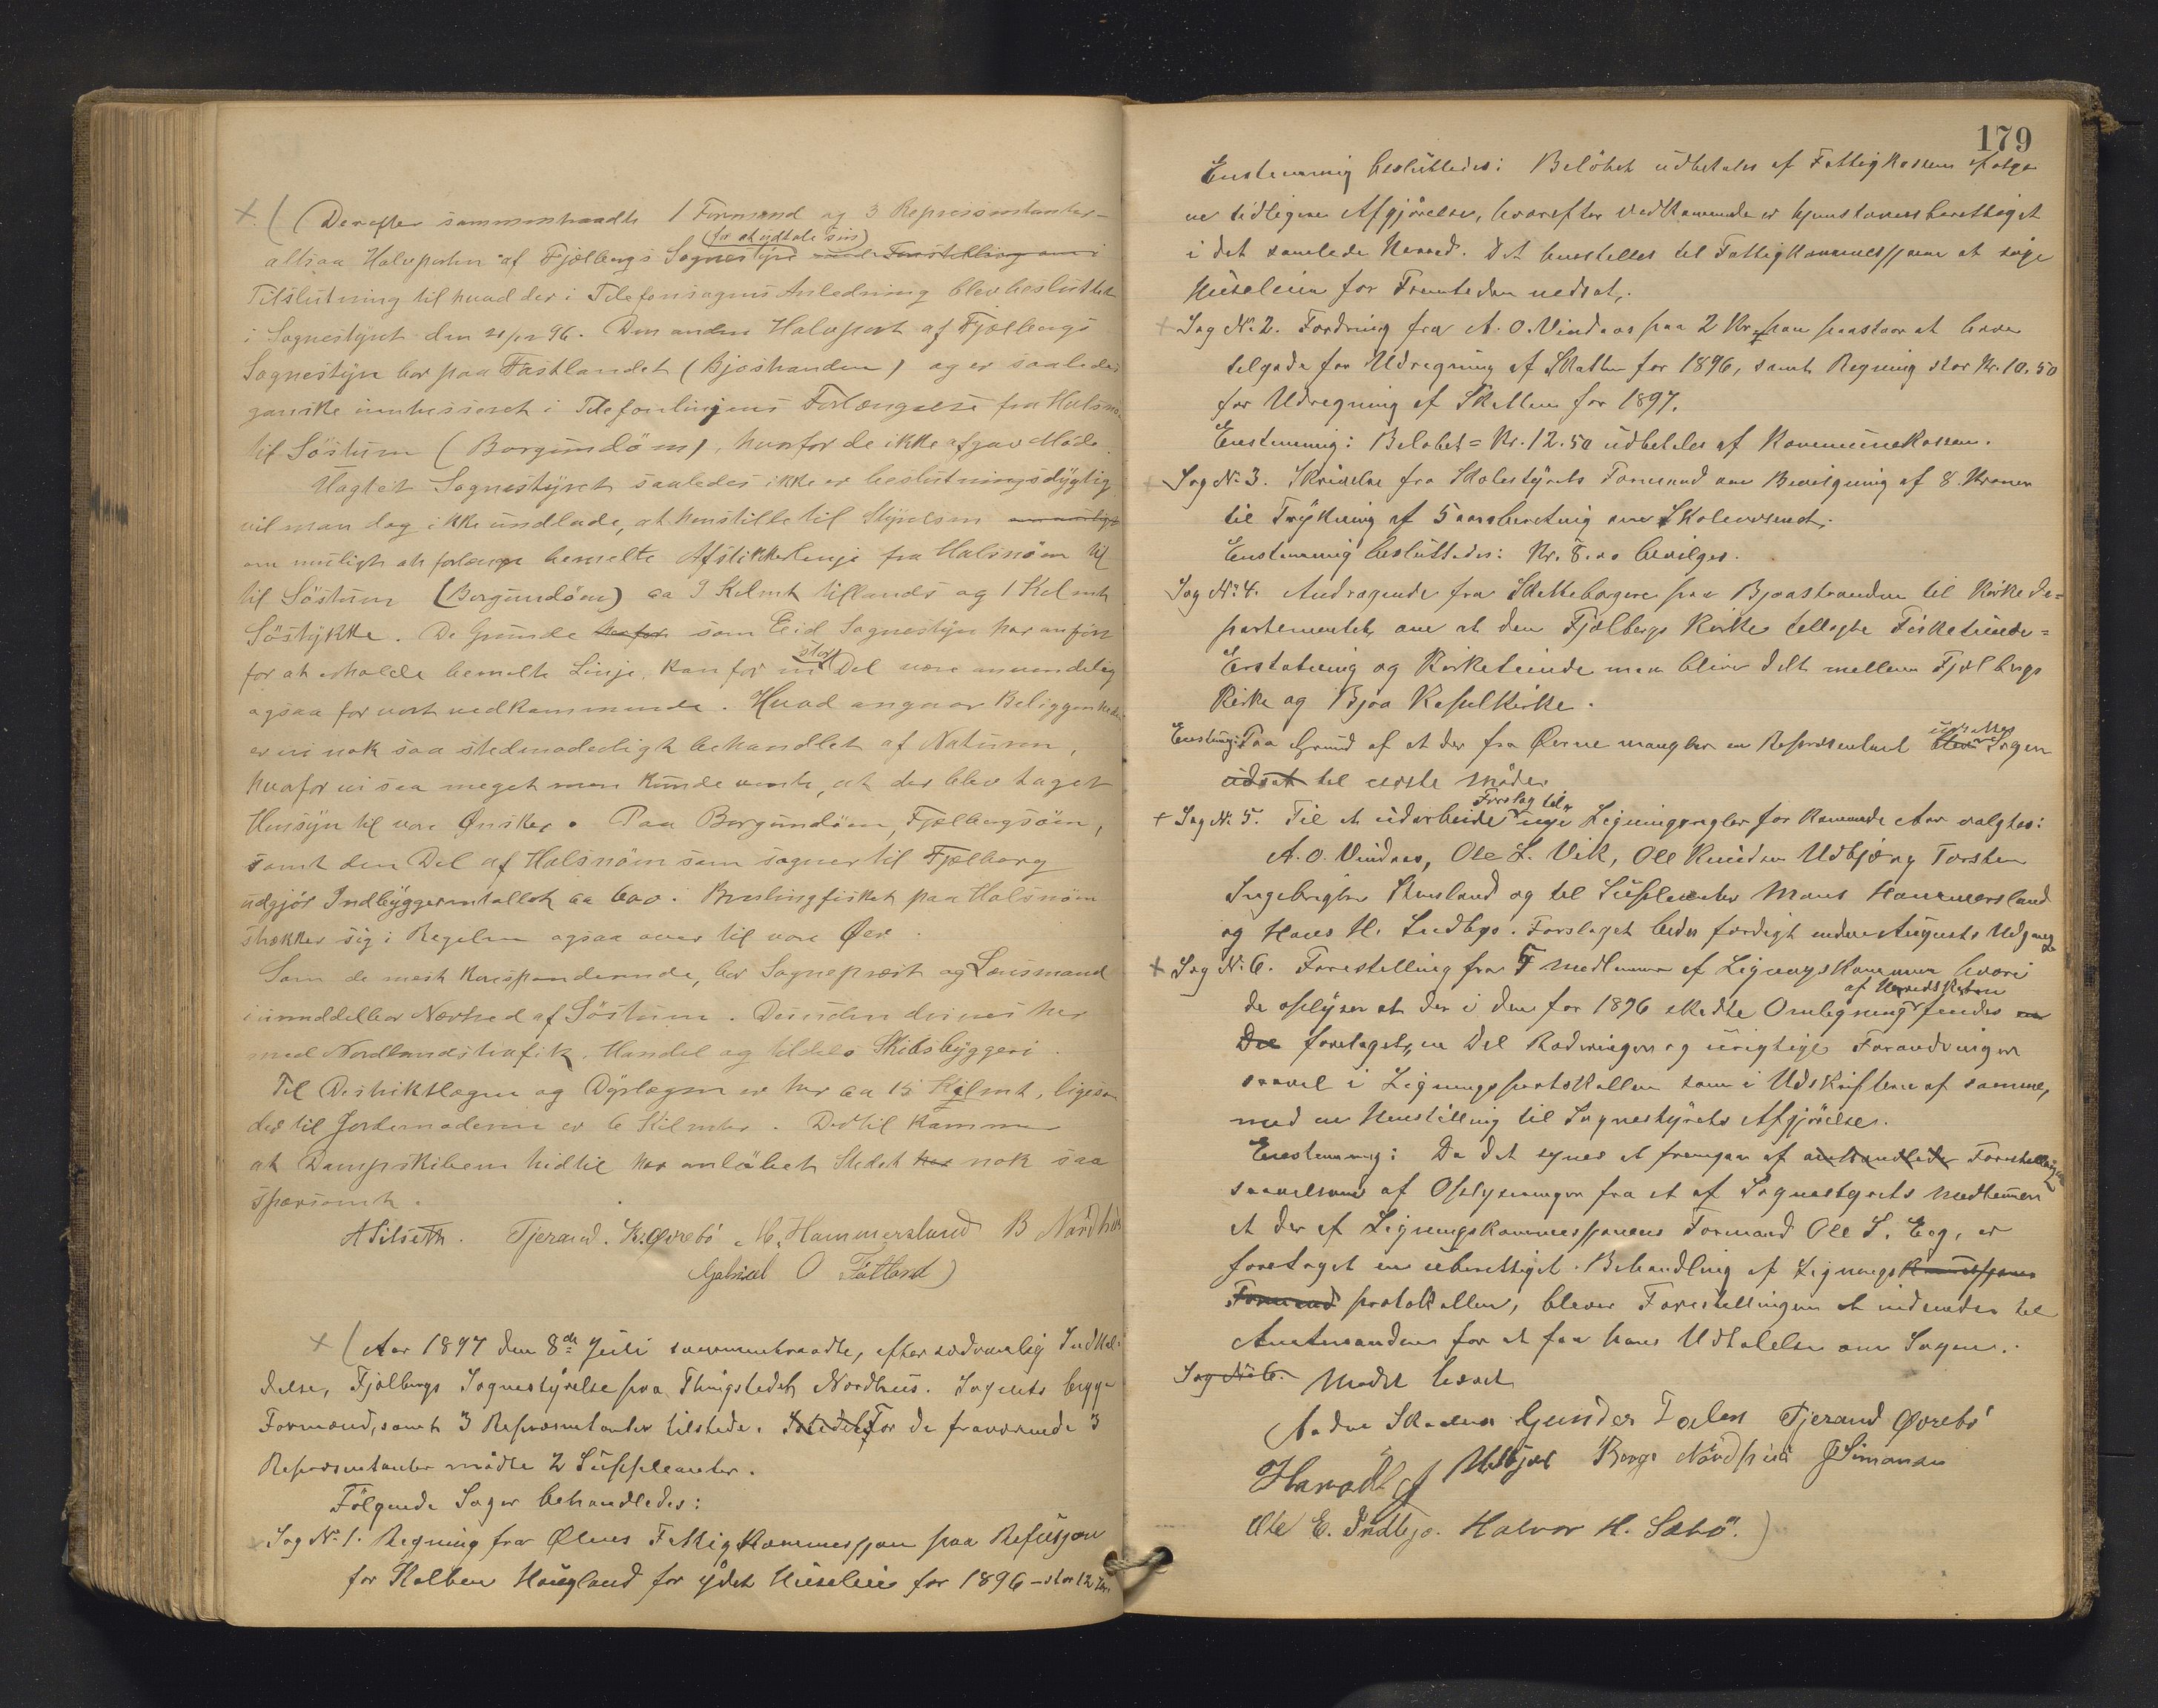 × ( Derefter sammentraadte 1 Formand og 3 Repræsentanter -
(for at udtale sin)
altsaa Halvparten af Fjælbergs Sognestyre med Forestilling om i
Tilslutning til hvad der i Telefonsagens Anledning blev besluttet
i Sognestyret den 21/12 96. Den anden Halvpart af Fjælbergs
Sognestyre bor paa Fastlandet (Bjostranden) og er saaledes
ganske uinteresseret i Telefonlinjens Forlængelse fra Halsnø
til Söstum (Borgundöen), hvorfor de ikke afgav Møde.
Uagtet Sognestyret saaledes ikke er beslutningsdygtig
vil man dog ikke undlade, at henstille til Styrelsen om muligt
om muligt at forlænge bemelte Afstikkerlinje fra Halsnöen til
til Söstum (Borgundöen) ca 9 Kilmt tillands og 1 Kilmt
Söstykke. De Grunde herfor som Eid Sognestyre har anfört
stor
for at erholde bemelte Linje, kan for en Del være anvendelig
ogsaa for vort vedkommende. Hvad angaar Beliggenheden
er vi nok saa stedmoderligt behandlet af Naturen,
hvorfor vi saa meget mere kunde vente, at der blev taget
Hensyn til vore Ønsker. Paa Borgundöen, Fjælbergsöen,
samt den Del af Halsnöen som sogner til Fjælberg
udgjör Indbyggerantallet ca 600. Brislingfisket paa Halsnöen
strækker sig i Regelen ogsaa over til vore Øer.
Som de mest korrespondernde, bor Sogneprest og Lensmand
i umiddelbar Nærhed af Söstum. Desuden drives her
med Nordlandstrafik, Handel og tildels Skibsbyggeri.
Til Distriktslægen og Dyrlægen er her ca 15 Kilmt, ligesaa
der til Jordemoderen er 6 Kilmter. Dertil kommer
at Dampskibene hidtil har anlöbet Stedet her nok saa
sparsomt.
A Silseth. Tjerand. K. Øvrebö M. Hammersland B Nordhus
Gabriel O Fatland)
× ( Aar 1897 den 8de Juli sammentraadte, efter sædvanlig Indkal-
delse, Fjælbergs Sognestyrelse paa Thingstedet Nordhus. Sognets begge
Formænd, samt 3 Repræsentanter tilstede. Istedetf For de fraværende 3
Repræsentanter mödte 2 Suppleanter.
Fölgende Sager behandledes:
× Sag No 1. Regning fra Ølens Fattigkommissjon paa Refusjon
for Kolben Haugland for ydet Husleie for 1896 - stor 12 Kr.
179
Enstemmig besluttedes: Belöbet udbetales af Fattigkassen ifölge
en tidligere Afgjörelse, hvorefter vedkommende er hjemstavnsberettiget
i det samlede Herred. Det henstilles til Fattigkommissjonen at söge
Husleien for Fremtiden nedsat.
+ Sag No 2. Fordring fra A. O. Vindnes paa 2 Kr. han paastaar at have
tilgode for Udregning af Skatten for 1896, samt Regning stor Kr. 10.50
for Udregning af Skatten for 1897.
Enstemmig: Belöbet = Kr. 12.50 udbetales af Kommunekassen.
× Sag No 3. Skrivelse fra Skolestyrets Formand om Bevilgning af 8 Kroner
til Trykning af 5 aarsberetnig om Skolevæsenet.
Enstemmig besluttedes: Kr. 8.00 bevilges.
Sag No 4. Andragende fra Skatteborgere paa Bjoastranden til Kirkede=
partementet om at den Fjælbergs Kirke tillagte Fisketiende=
Erstatning og Kirketiende maa bliver delt mellem Fjælbergs
Kirke og Bjoa Kapelkirke.
udsættes
Enstmig: Paa Grund af at der fra Øerne mangler en Repræsentant blev Sagen
udsat til næste Möde.
Forslag til
+ Sag No 5. Til at udarbeide nye Ligningsregler for kommende Aar valgtes:
A. O. Vindnes, Ole L. Vik, Ole Knudsen Udbjærg Torsten
Ingebrigtsen Skersland og til Supleanter Mons Hammersland
og Hans H. Indbjo. Forslaget bedes færdigt inden Augusts Udgang
× Sag No 6. Forestelling fra 5 medlemmer af Ligningskommissn hvori
af Herredskatten
de oplyser at der i den for 1896 skedte Omligning findes en
Del foretaget, en Del Raderinger og urigtige Forandringer
saavel i Ligningsprotokollen som i Udskriften af samme,
med en Henstilling til Sognestyrets Afgjörelse.
Enstemmig: Da det synes at fremgaa af Forestillingen
saavelsom af Oplysninger fra et af Sognestyrets medlemmer
at der af Ligningskommissjonens Formand Ole S. Eeg, er
foretaget en uberettiget Behandling af Ligningskommissjonens
Formand protokollen, bliver Forestillingen at indsende til
Amtmanden for at faa hans Udtalelse om Sagen.
Sag No 6. Mödet hævet
Gunder Dalen Tjerand Øvrebö
Udbjør Børge Nordhus J Simonsen
Ole E. Indbjo. Halvor H. Sæbö.)